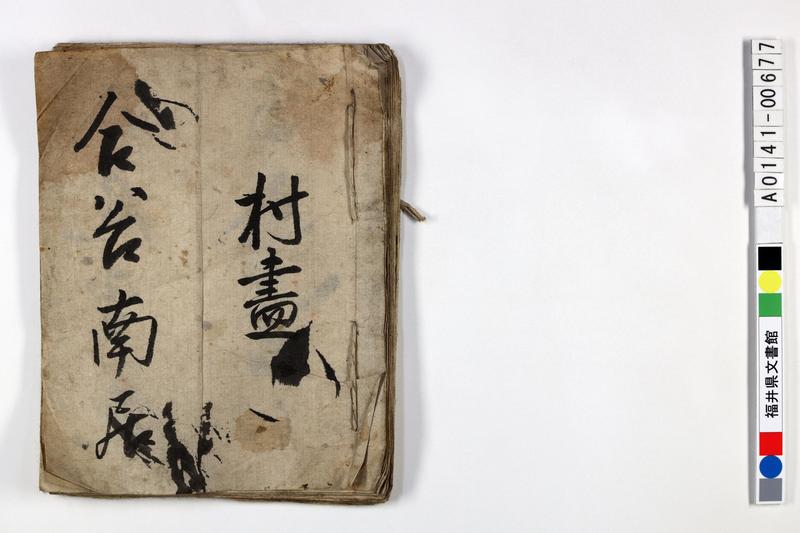 村盡
合谷南居
A0141-00677
福井県文書館